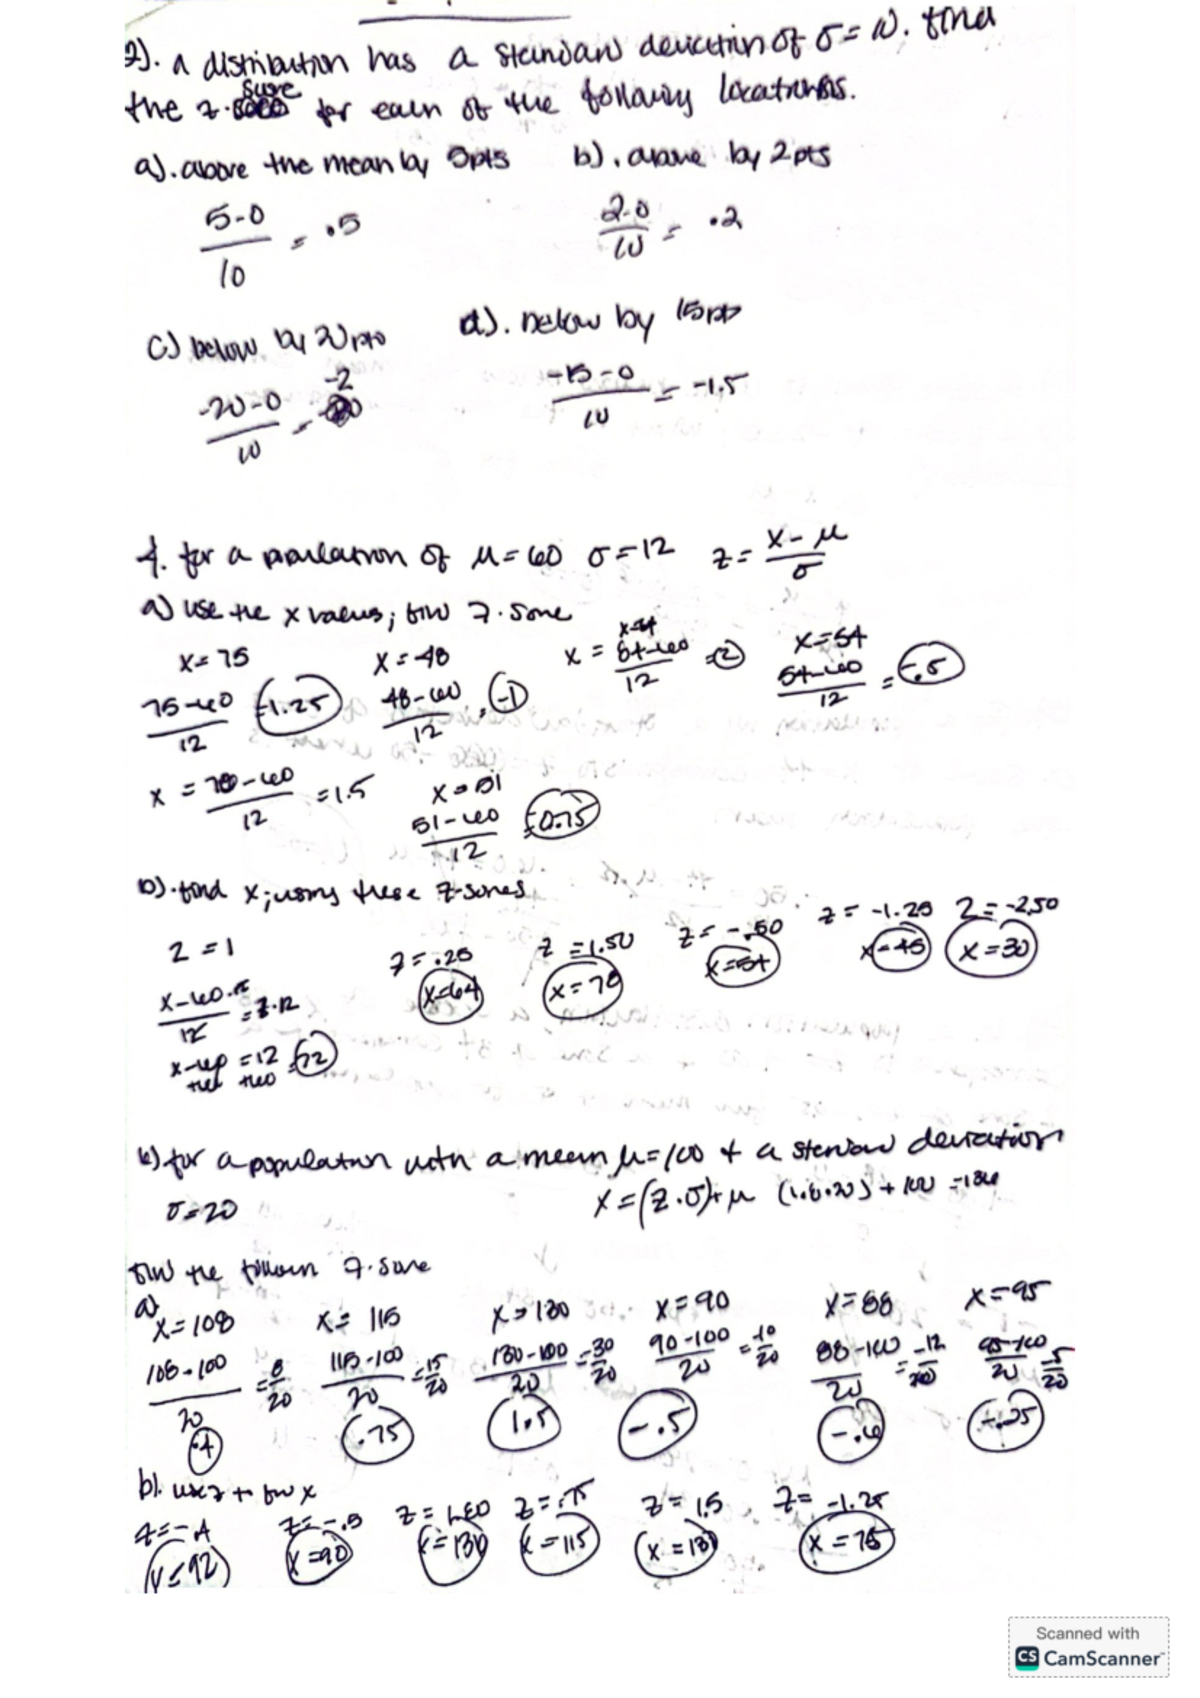 2). a distribution has a standard deviation of σ = 10. find
the z-score for each of the following locations.
a). above the mean by 5pts b). above by 2pts
5-0/10 = .5 2-0/10 = .2
c) below by 20pts d). below by 15pts
-20-0/10 = -2 -15-0/10 = -1.5
4. for a population of μ=60 σ=12 z = x-μ/σ
a) use the x values; find z-score
x=75 x=48 x=84 x=54
75-60/12 =1.25 48-60/12 = -1 x = 84-60/12 =2 54-60/12 = -.5
x = 78-60/12 =1.5 x=51
51-60/12 =-0.75
b). find x; using these z-scores
z=1 z=.25 z=1.50 z=-.50 z=-1.25 z=-2.50
x=64 x=78 x=54 x=45 x=30
x-60·12/12 =1·12
x-60 =12 =72
+60 +60
6) for a population with a mean μ=100 + a standard deviation
σ=20 x=(z·σ)+μ
find the z-score
a)
x=108 x=115 x=130 x=90 x=88 x=95
108-100/20 =8/20 115-100/20 =15/20 130-100/20 =30/20 90-100/20 =-10/20 88-100/20 =-12/20 95-100/20 -5/20
.4 .75 1.5 -.5 -.6 -.25
b). use z to find x
z=-.4 z=-.5 z=1.50 z=.75 z=1.5 z=-1.25
x=92 x=90 x=130 x=115 x=130 x=75
Scanned with
CS CamScanner